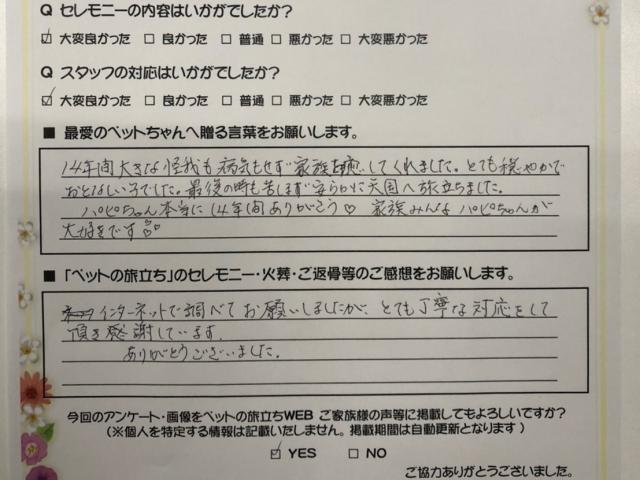 Q セレモニーの内容はいかがでしたか?
☑ 大変良かった □ 良かった □ 普通 □ 悪かった □ 大変悪かった
Q スタッフの対応はいかがでしたか?
☑ 大変良かった □ 良かった □ 普通 □ 悪かった □ 大変悪かった
■ 最愛のペットちゃんへ贈る言葉をお願いします。
14年間大きな怪我も病気もせず家族を癒してくれました。とても穏やかで
おとなしい子でした。最後の時も苦しまず安らかに天国へ旅立ちました。
パピちゃん本当に14年間ありがとう♡ 家族みんなパピちゃんが
大好きです
■「ペットの旅立ち」のセレモニー・火葬・ご返骨等のご感想をお願いします。
インターネットで調べてお願いしましたが、とても丁寧な対応をして
頂き感謝しています。
ありがとうございました。
今回のアンケート・画像をペットの旅立ちWEB ご家族様の声等に掲載してもよろしいですか?
(※個人を特定する情報は記載いたしません。掲載期間は自動更新となります)
☑ YES □ NO
ご協力ありがとうございました。